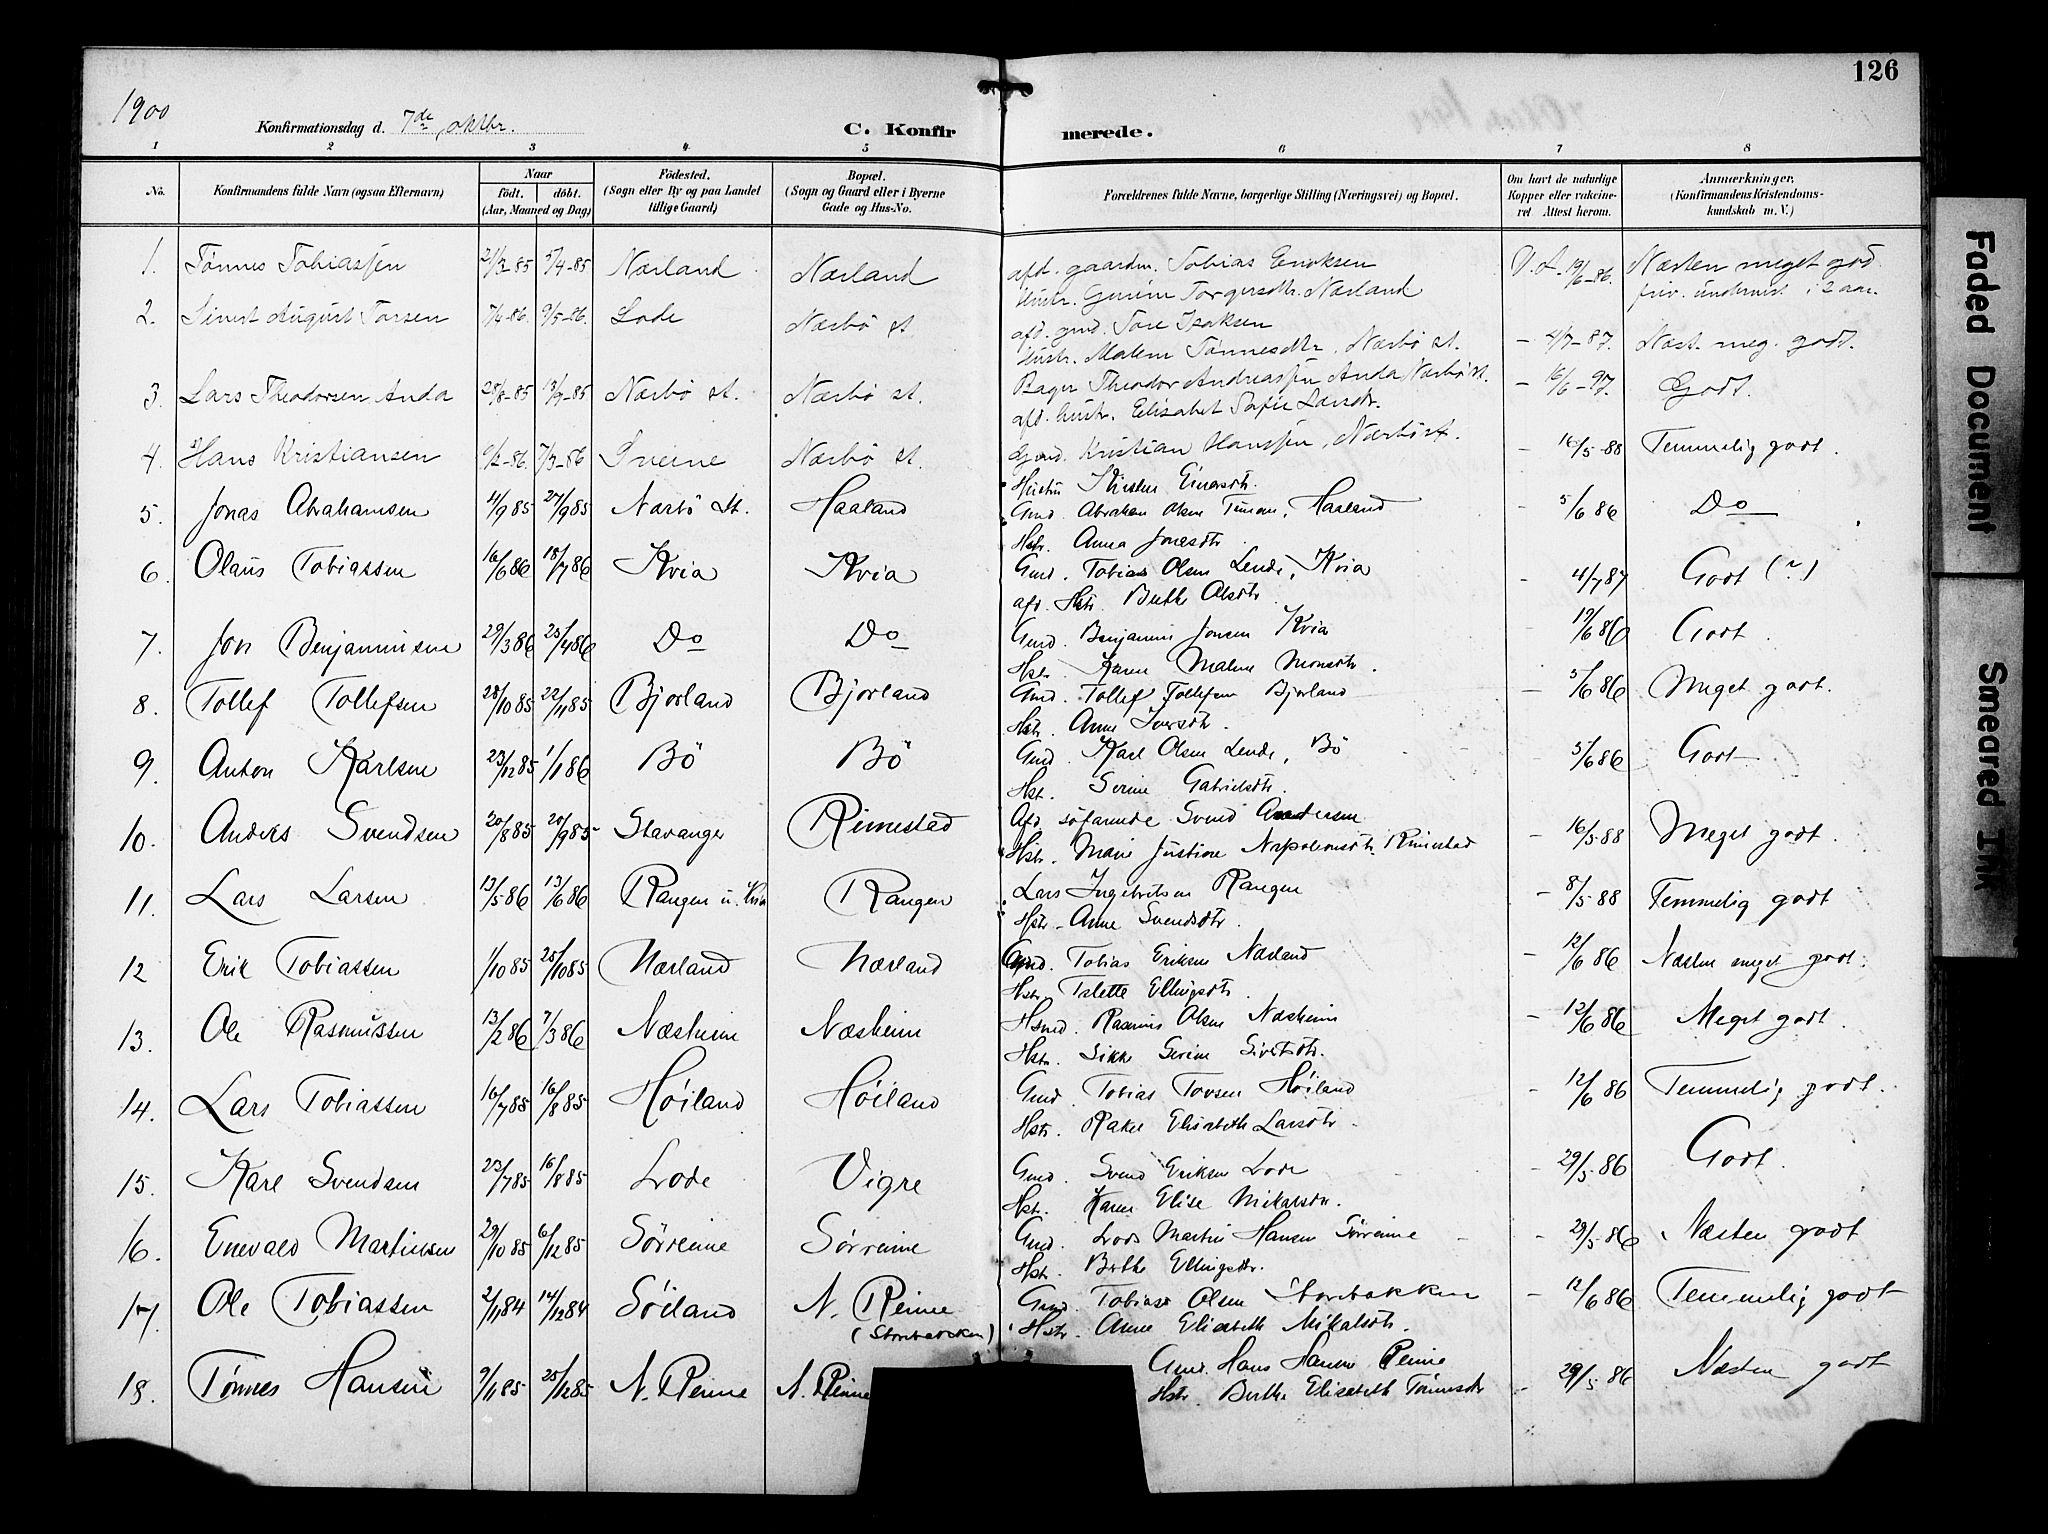 126
1900
Konfirmationsdag d. 7de oktbr.
C. Konfirmerede.
1 2 3 4 5 6 7 8
No.
Konfirmandens fulde Navn (ogsaa Efternavn)
Naar
født. døbt.
(Aar, Maaned og Dag)
Fødested.
(Sogn eller By og paa Landet
tillige Gaard)
Bopæl.
(Sogn og Gaard eller i Byerne
Gade og Hus-No.
Forældrenes fulde Navne, borgerlige Stilling (Næringsvei) og Bopæl.
Om havt de naturlige
Kopper eller vakcine-
ret Attest herom.
Anmærkninger.
(Konfirmandens Kristendoms-
kundskab m. V.)
1. Tønnes Tobiassen 21/3-85 5/4-85 Nærland Nærland afd. gaardm. Tobias Eriksen V.A. 19/6-86. Næsten meget god
hustr. Gurine Torgersdtr. Nærland priv. undervist i 2 aar.
2. Sivert August Torsen 7/4-86. 9/5-86. Lode Nærbö st afd. gmd. Tore Isaksen
hustr. Malene Tønnesdtr, Nærbö st. - 4/7-87. Næst. meg. godt.
3. Lars Theodorsen Anda 28/8-85 13/9-85 Nærbö st. Nærbö st. Bager Theodor Andreassen Anda, Nærbö st. - 16/6-97. Godt.
afd. hustr. Elisabet Sofie Larsdtr.
4. Hans Kristiansen 9/2-86. 7/3-86 Nærbö st. Gmd. Kristian Hanssen, Nærbö st. - 16/5-88 Temmelig godt.
Hustru Kirsten Einarsdtr.
5. Jonas Abrahamsen 4/9 85 27/9 85 Nærbö St. Haaland Gmd. Abraham Olsen, Haaland - 5/6 86 Do
Hstr. Anna Jonasdtr
6. Olaus Tobiassen 16/6 86 18/7 86 Kvia Kvia Gmd. Tobias Olsen Lende, Kvia - 4/7 87 Godt (÷)
afd. Hstr. Berthe Olsdtr.
7. Jon Benjaminsen 29/3 86 25/4 86 Do Do Gmd. Benjamin Jonsen Kvia 19/6 86 Godt.
Hst. Karen Malene Monsdtr.
8. Tollef Tollefsen 28/10 85 22/11 85 Bjorland Bjorland Gmd. Tollef Tollefsen Bjorland - 5/6 86 Meget godt.
Hst. Anne Iversdtr.
9. Anton Karlsen 23/12 85 1/1 86 Bö Bö Gmd. Karl Olsen Lende, Bö 5/6 86 Godt
Hst. Serine Gabrielsdtr.
10. Anders Svendsen 20/8 85 20/9 85 Stavanger Rimestad Afd. søfarende Svend Andersen - 16/5 88 Meget godt.
Hstr. Marie Justine Napoleonsdtr. Rimestad
11. Lars Larsen 13/5 86 13/6 86 Rangen u. Kvia Rangen Lars Ingebretsen Rangen - 8/5 88 Temmelig godt
Hstr. Anne Svendsdtr.
12 Erik Tobiassen 1/10 85 25/10 85 Nærland Nærland Gmd. Tobias Eriksen Nærland - 12/6 86 Næsten meget godt.
Hstr. Talette Ellingsdtr.
13. Ole Rasmussen 13/2 86 7/3 86 Næsheim Næsheim Hsmd. Rasmus Olsen Næsheim - 12/6 86 Meget godt.
Hst. Sikke Serine Sivertsdtr.
14. Lars Tobiassen 16/7 85 16/8 85 Høiland Høiland Gmd. Tobias Torsen Høiland - 12/6 86 Temmelig godt.
Hstr. Rakel Elisabeth Larsdtr.
15. Karl Svendsen 23/7 85 16/8 85 Lode Vigre Gmd. Svend Eriksen Lode - 29/5 86 Godt.
Hst. Karen Elise Mikalsdtr.
16. Enevald Martinsen 29/10 85 6/12 85 Sørreime Sørreime Gmd. Martin Hansen Sørreime - 29/5 86 Næsten godt
Hst. Berthe Ellingsdtr.
17. Ole Tobiassen 2/11 84 14/12 84 Söiland N. Reime Gmd. Tobias Olsen Storebakken - 12/6 86 Temmelig godt
(Storebakken) Hstr. Anne Elisabeth Mikalsdtr.
18. Tønnes Hansen 9/11 85 25/12 85 N. Reime N. Reime Gmd. Hans Hansen Reime - 29/5 86 Næsten godt
Hstr. Berthe Elisabeth Tönnesdtr
Faded Document
Smeared Ink